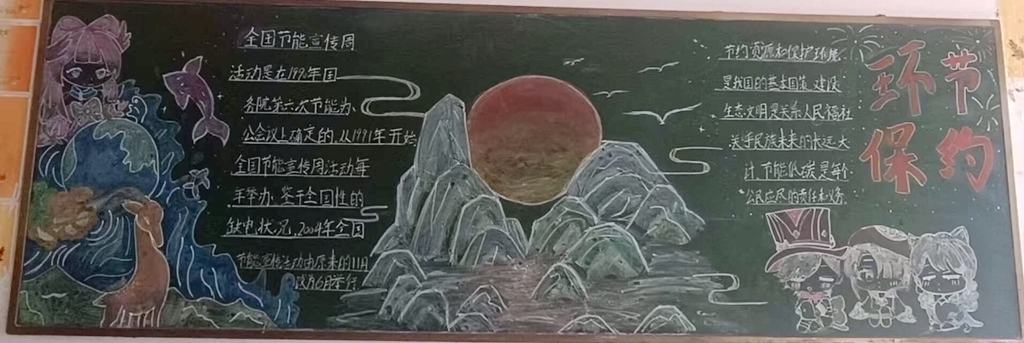 全国节能宣传周
活动是在1990年国
务院第六次节能办
公会议上确定的,从1991年开始
全国节能宣传周活动每
年举办.鉴于全国性的
缺电状况,2004年全国
节能宣传活动由原来的11月
改为6月举行
节约资源和保护环境
是我国的基本国策 建设
生态文明是关系人民福祉
关乎民族未来的长远大
计.节能低碳是每个
公民应尽的责任和义务
环节
保约